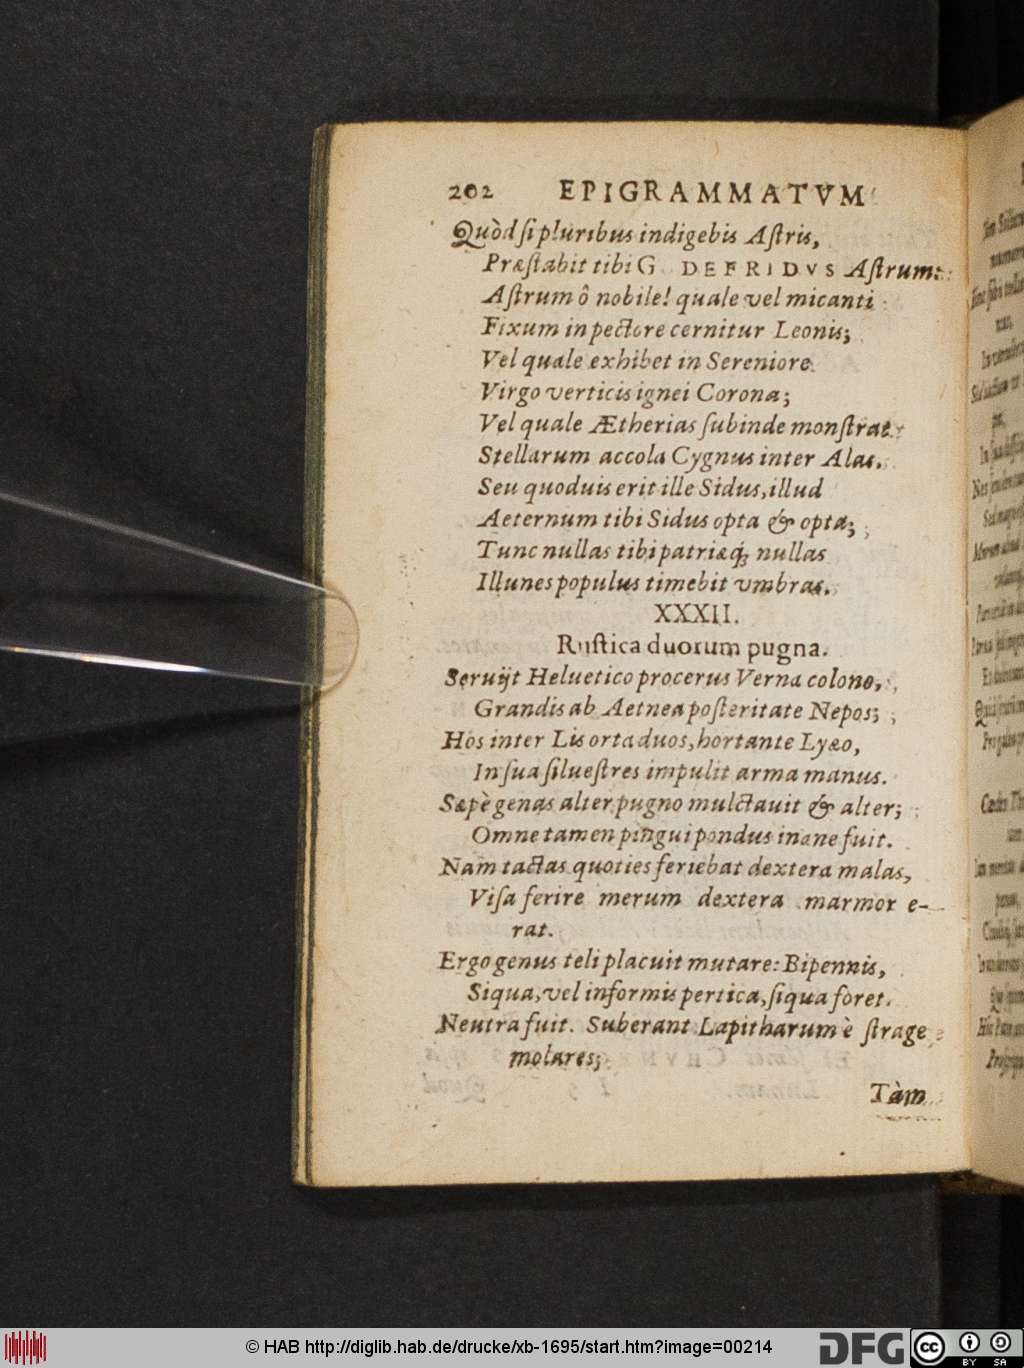 202 EPIGRAMMATVM
Quòd ſi pluribus indigebis Aſtris,
Præſtabit tibi G DEFRIDVS Aſtrum:
Aſtrum ô nobile! quale vel micanti
Fixum in pectore cernitur Leonis;
Vel quale exhibet in Sereniore
Virgo verticis ignei Corona;
Vel quale Ætherias ſubinde monſtrat
Stellarum accola Cygnus inter Alas.
Seu quoduis erit ille Sidus, illud
Aeternum tibi Sidus opta & opta;
Tunc nullas tibi patriæq́; nullas
Illunes populus timebit vmbras.
XXXII.
Ruſtica duorum pugna.
Seruijt Heluetico procerus Verna colono,
Grandis ab Aetnea poſteritate Nepos;
Hos inter Lis orta duos, hortante Lyæo,
In ſua ſilueſtres impulit arma manus.
Sæpè genas alter pugno mulctauit & alter;
Omne tamen pingui pondus inane fuit.
Nam tactas quoties feriebat dextera malas,
Viſa ferire merum dextera marmor e-
rat.
Ergo genus teli placuit mutare: Bipennis,
Siqua, vel informis pertica, ſiqua foret.
Neutra fuit. Suberant Lapitharum è ſtrage
molares;
Tàm
© HAB http://diglib.hab.de/drucke/xb-1695/start.htm?image=00214
DFG
cc BY SA